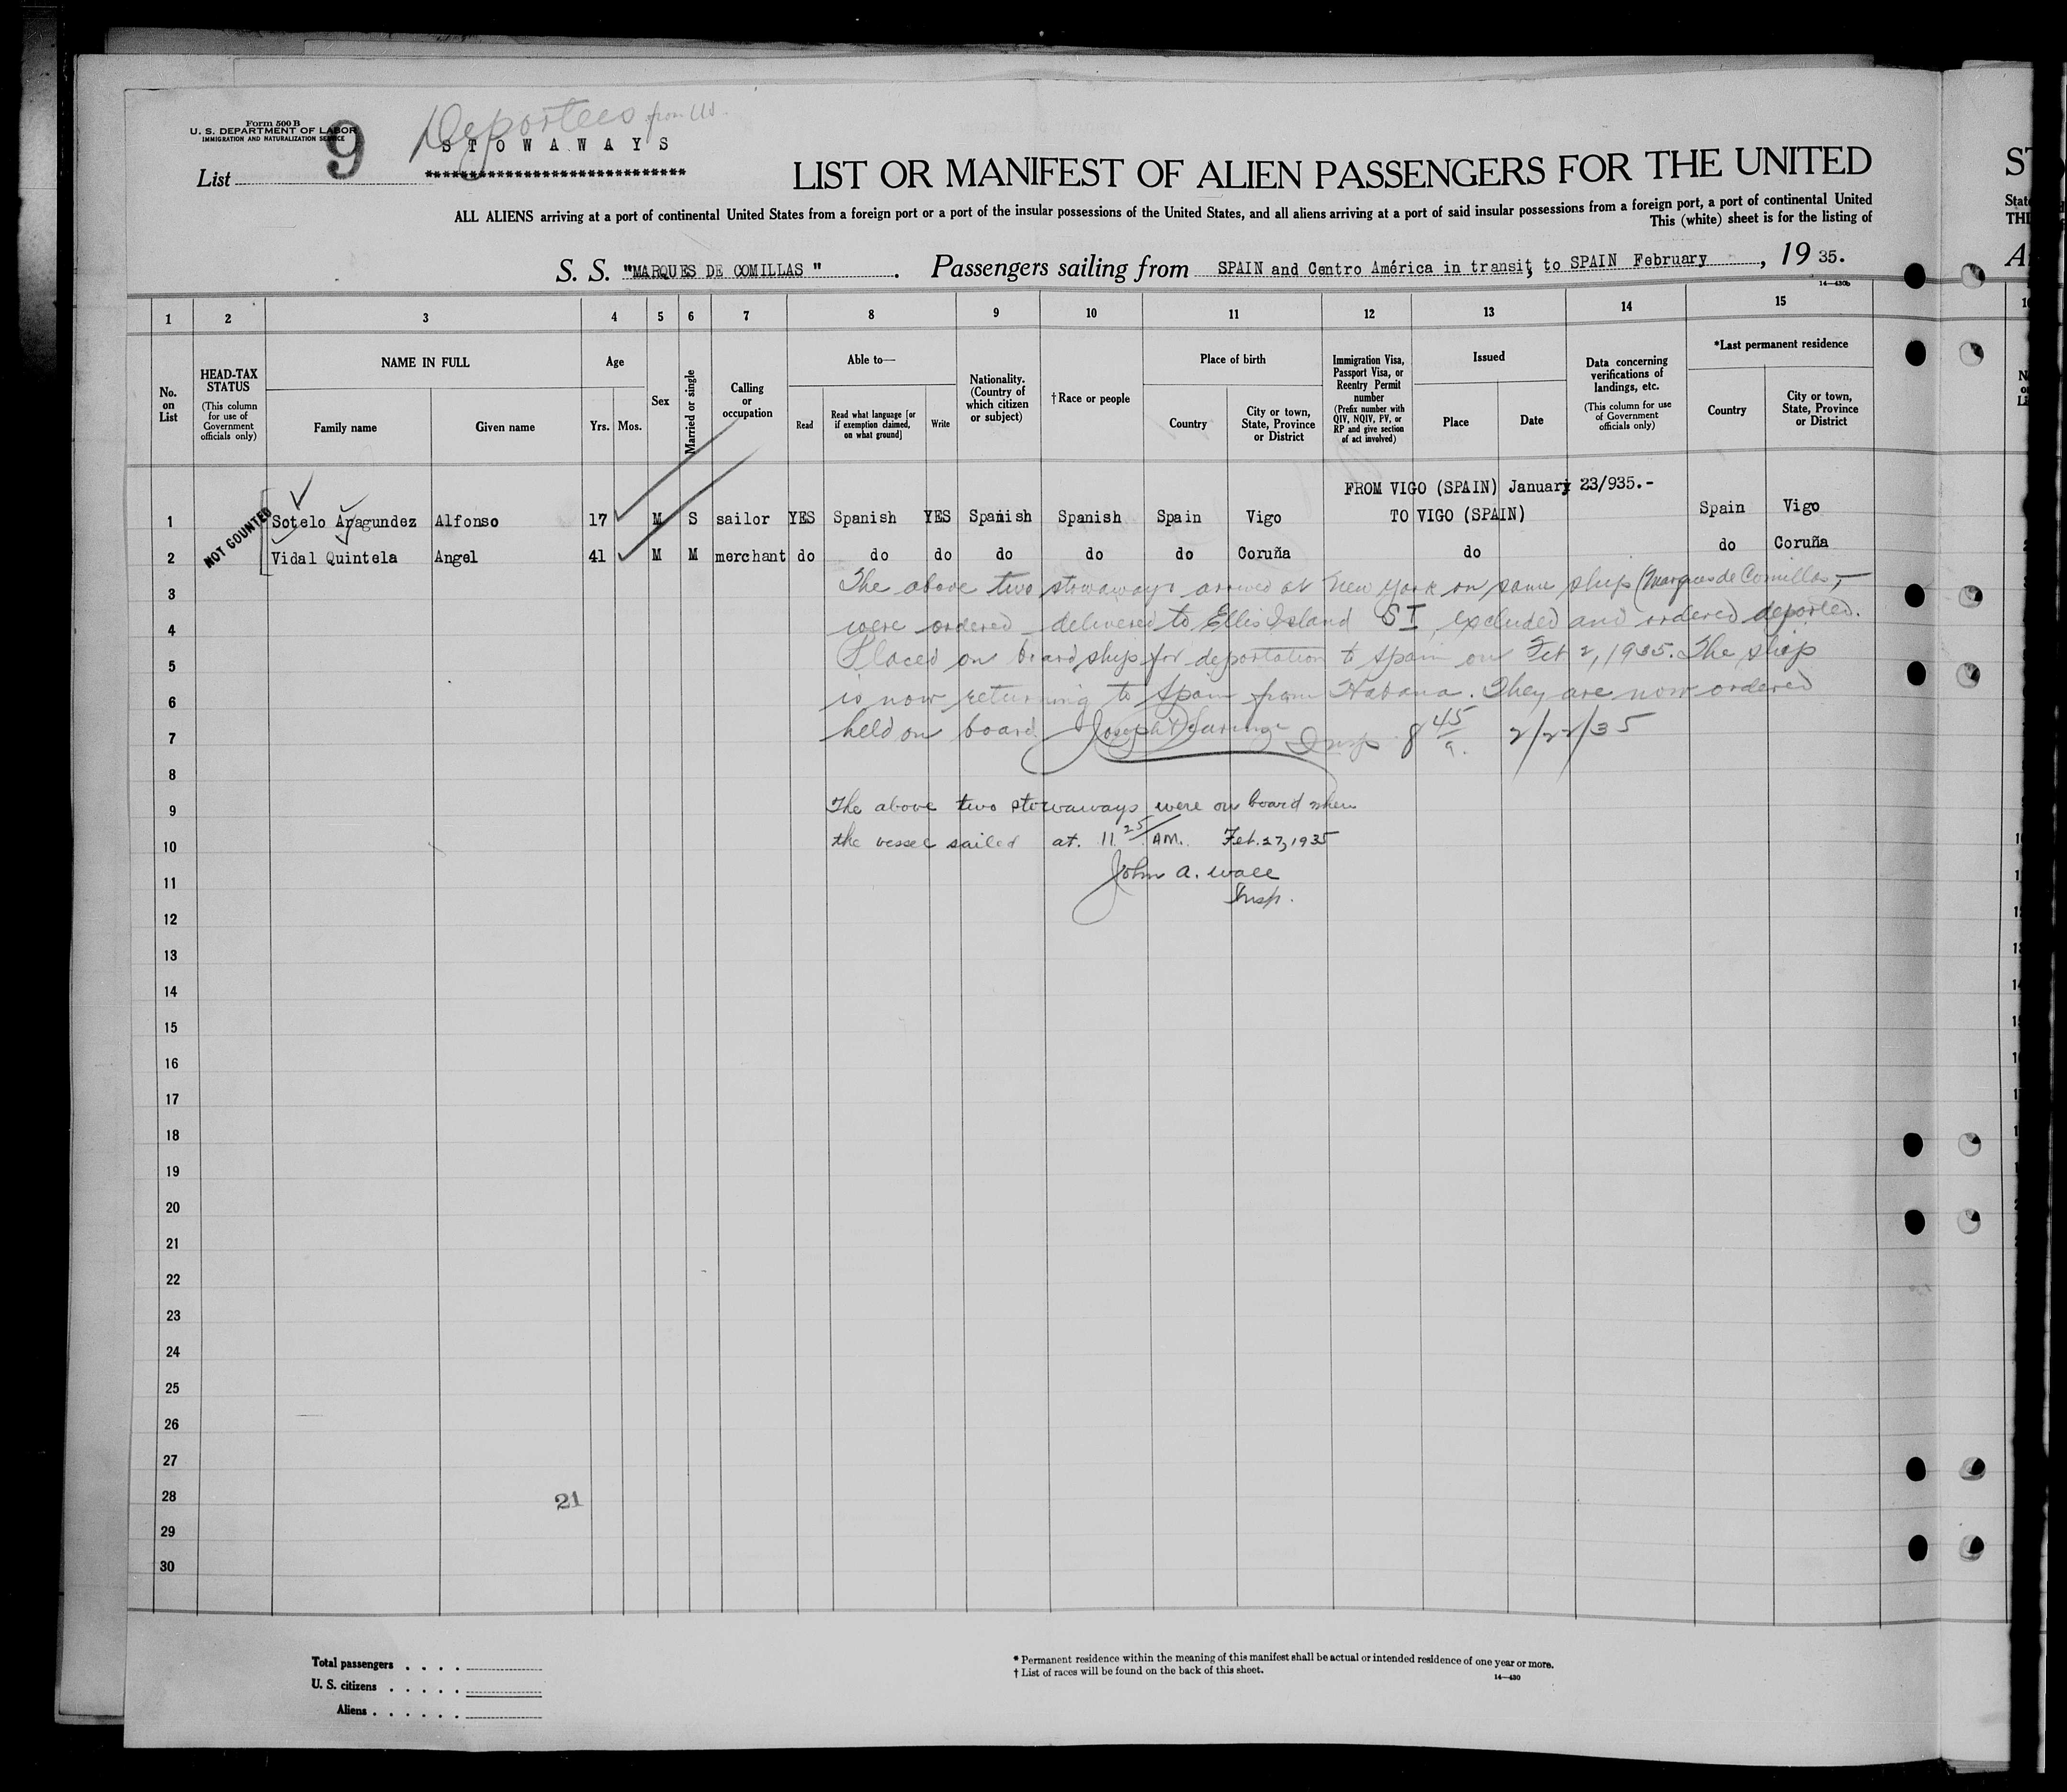 Form 500 B
U. S. DEPARTMENT OF LABOR
IMMIGRATION AND NATURALIZATION SERVICE
List 9
Deportees from US
STOWAWAYS
****************************
LIST OR MANIFEST OF ALIEN PASSENGERS FOR THE UNITED
ALL ALIENS arriving at a port of continental United States from a foreign port or a port of the insular possessions of the United States, and all aliens arriving at a port of said insular possessions from a foreign port, a port of continental United
This (white) sheet is for the listing of
S. S. "MARQUES DE COMILLAS ". Passengers sailing from SPAIN and Centro América in transit, to SPAIN February, 1935.
14—430b
1 2 3 4 5 6 7 8 9 10 11 12 13 14 15
No. on List
HEAD-TAX STATUS
(This column for use of Government officials only)
NAME IN FULL
Family name Given name
Age
Yrs. Mos.
Sex
Married or single
Calling or occupation
Able to—
Read
Read what language [or if exemption claimed, on what ground]
Write
Nationality. (Country of which citizen or subject)
†Race or people
Place of birth
Country
City or town, State, Province or District
Immigration Visa, Passport Visa, or Reentry Permit number
(Prefix number with QIV, NQIV, PV, or RP and give section of act involved)
Issued
Place Date
Data concerning verifications of landings, etc.
(This column for use of Government officials only)
*Last permanent residence
Country
City or town, State, Province or District
FROM VIGO (SPAIN) January 23/935.-
NOT COUNTED
1 Sotelo Aragundez Alfonso 17 M S sailor YES Spanish YES Spanish Spanish Spain Vigo TO VIGO (SPAIN) Spain Vigo
2 Vidal Quintela Angel 41 M M merchant do do do do do do Coruña do do Coruña
3 The above two stowaways arrived at New York on same ship (Marques de Comillas,—
4 were ordered delivered to Ellis Island SI, excluded and ordered deported.
5 Placed on board ship for deportation to Spain on Feb 2, 1935. The ship
6 is now returning to Spain from Habana. They are now ordered
7 held on board. Joseph Insp 8 45/a. 2/27/35
8
9 The above two stowaways were on board when
10 the vessel sailed at 11 25/ AM. Feb. 27, 1935
11 John A. Wall
Insp.
12
13
14
15
16
17
18
19
20
21
22
23
24
25
26
27
28
21
29
30
Total passengers . . . .
U. S. citizens . . . . .
Aliens . . . . . .
* Permanent residence within the meaning of this manifest shall be actual or intended residence of one year or more.
† List of races will be found on the back of this sheet.
14—430